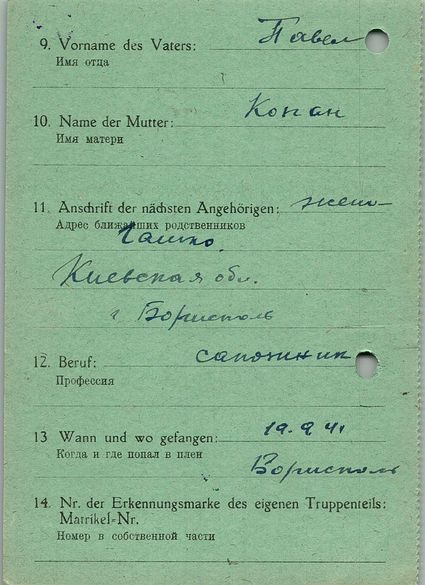 9. Vorname des Vaters: Павел
Имя отца
10. Name der Mutter: Копан
Имя матери
11. Anschrift der nächsten Angehörigen: жена
Адрес ближайших родственников
Киевская обл.
г Борисполь
12. Beruf: сапожник
Профессия
13 Wann und wo gefangen: 19.9 41
Когда и где попал в плен
Борисполь
14. Nr. der Erkennungsmarke des eigenen Truppenteils:
Matrikel=Nr.
Номер в собственной части